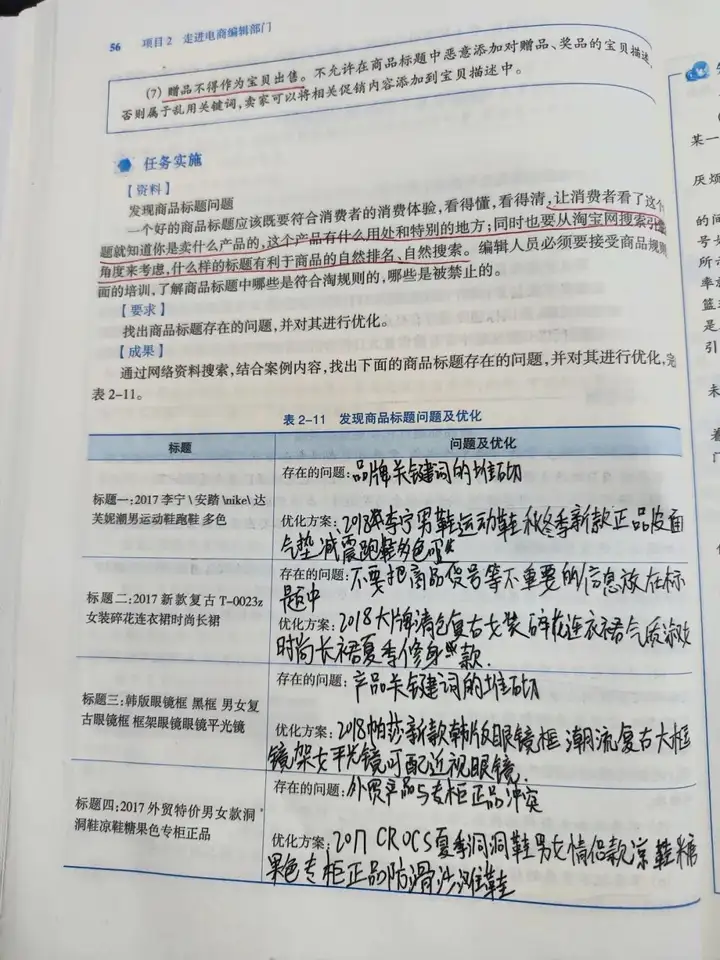 56 项目2 走进电商编辑部门
(7) 赠品不得作为宝贝出售。不允许在商品标题中恶意添加对赠品、奖品的宝贝描述,
否则属于乱用关键词,卖家可以将相关促销内容添加到宝贝描述中。
任务实施
【资料】
发现商品标题问题
一个好的商品标题应该既要符合消费者的消费体验,看得懂,看得清,让消费者看了这个
题就知道你是卖什么产品的,这个产品有什么用处和特别的地方;同时也要从淘宝网搜索引
角度来考虑,什么样的标题有利于商品的自然排名、自然搜索。编辑人员必须要接受商品规则
面的培训,了解商品标题中哪些是符合淘规则的,哪些是被禁止的。
【要求】
找出商品标题存在的问题,并对其进行优化。
【成果】
通过网络资料搜索,结合案例内容,找出下面的商品标题存在的问题,并对其进行优化,完
表 2-11。
表 2-11 发现商品标题问题及优化
标题 问题及优化
标题一:2017 李宁 \ 安踏 \nike\ 达
芙妮潮男运动鞋跑鞋 多色
存在的问题:品牌关键词的堆砌
优化方案:2018李宁男鞋运动鞋秋冬季新款正品皮面
气垫减震跑鞋多色
标题二:2017 新款复古 T-0023z
女装碎花连衣裙时尚长裙
存在的问题:不要把商品货号等不重要的信息放在标
题中
优化方案:2018大牌清仓复古女装碎花连衣裙气质淑女
时尚长裙夏季修身款.
标题三:韩版眼镜框 黑框 男女复
古眼镜框 框架眼镜眼镜平光镜
存在的问题:产品关键词的堆砌
优化方案:2018帕莎新款韩版眼镜框潮流复古大框
镜架女平光镜可配近视眼镜.
标题四:2017 外贸特价男女款洞
洞鞋凉鞋糖果色专柜正品
存在的问题:外贸产品与专柜正品冲突
优化方案:2017 CROCS夏季洞洞鞋男女情侣款凉鞋糖
果色专柜正品防滑沙滩鞋
某一
厌烦
的间
号女
所示
率放
篮
是
引
未
着
门